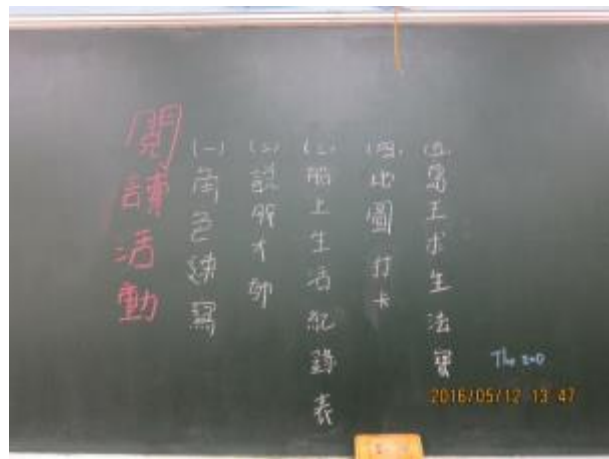 閱讀活動
(一)角色速寫
(二)說服大師
(三)船上生活紀錄表
(四)地圖打卡
(五)島王求生法寶
The zoo
2016/05/12 13:47